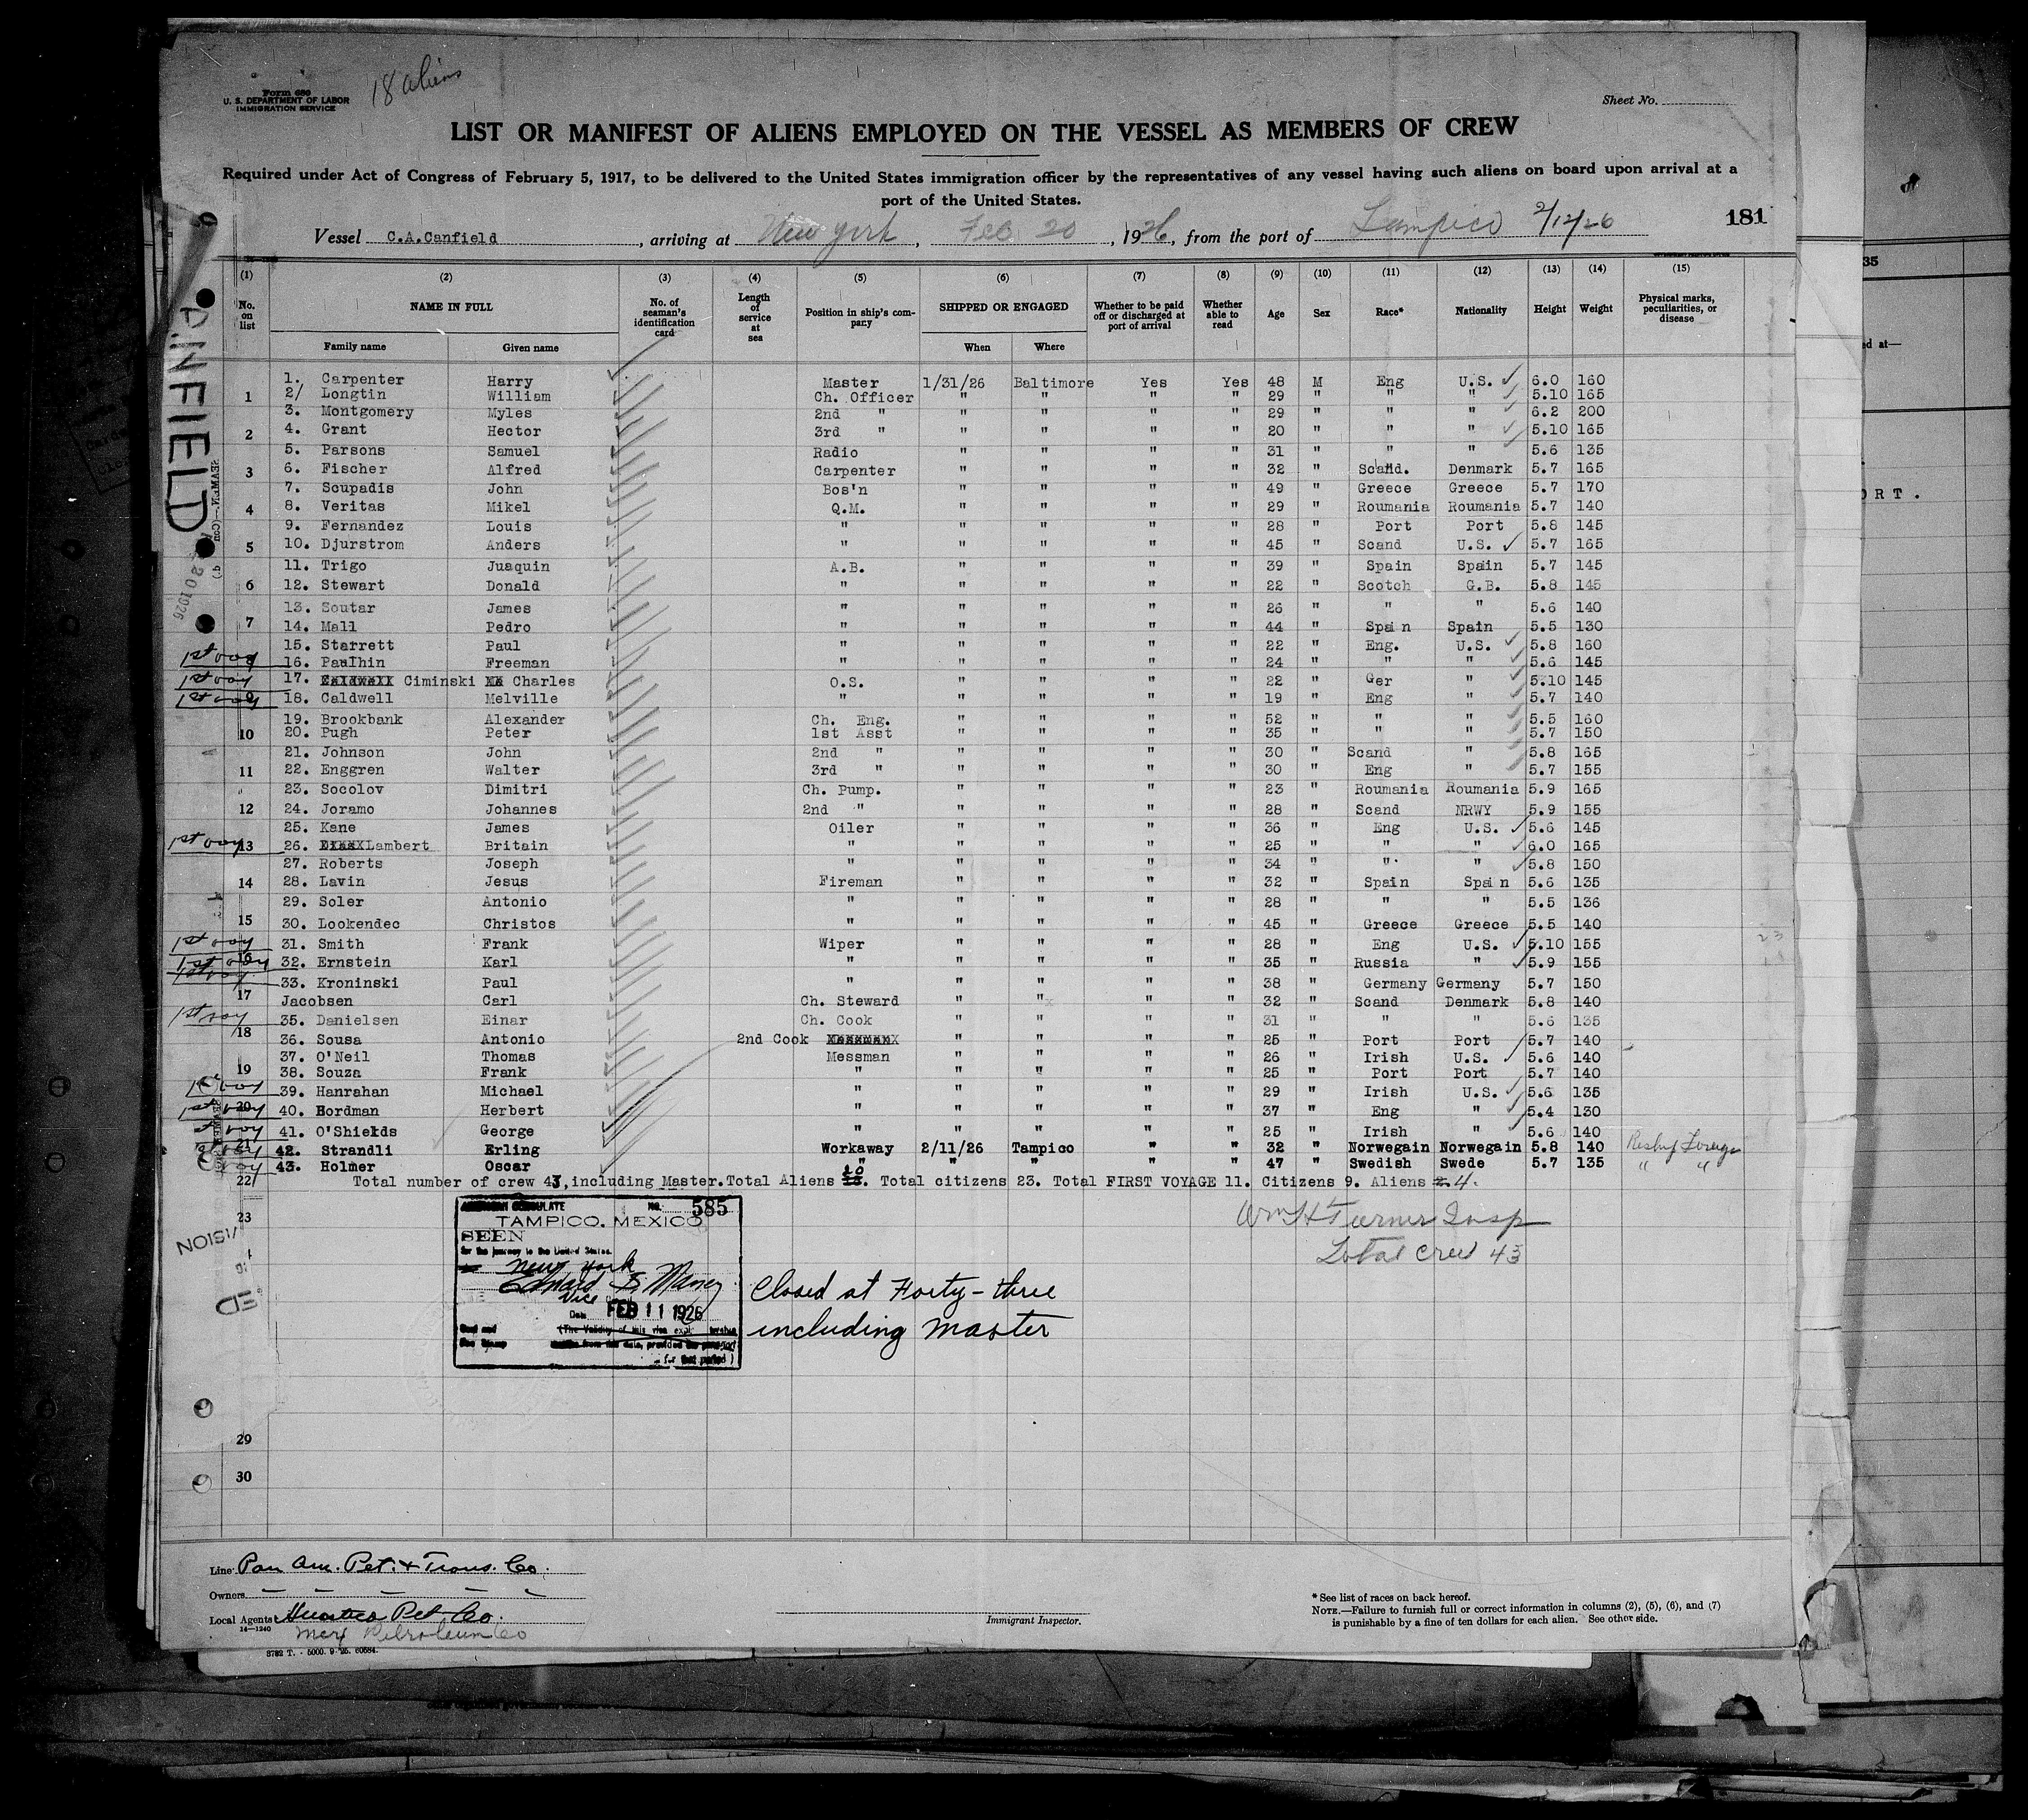 18 aliens
Form 680
U. S. DEPARTMENT OF LABOR
IMMIGRATION SERVICE
Sheet No.
LIST OR MANIFEST OF ALIENS EMPLOYED ON THE VESSEL AS MEMBERS OF CREW
Required under Act of Congress of February 5, 1917, to be delivered to the United States immigration officer by the representatives of any vessel having such aliens on board upon arrival at a
port of the United States.
Vessel C.A.Canfield, arriving at New York, Feb 20, 1926, from the port of Tampico 2/12/26
181
(1) (2) (3) (4) (5) (6) (7) (8) (9) (10) (11) (12) (13) (14) (15)
No. on list NAME IN FULL No. of seaman's identification card Length of service at sea Position in ship's company SHIPPED OR ENGAGED Whether to be paid off or discharged at port of arrival Whether able to read Age Sex Race* Nationality Height Weight Physical marks, peculiarities, or disease
Family name Given name When Where
1. Carpenter Harry Master 1/31/26 Baltimore Yes Yes 48 M Eng U.S. ✓ 6.0 160
1 2/ Longtin William Ch. Officer " " " " 29 " " " ✓ 5.10 165
3. Montgomery Myles 2nd " " " " " 29 " " " ✓ 6.2 200
2 4. Grant Hector 3rd " " " " " 20 " " " ✓ 5.10 165
5. Parsons Samuel Radio " " " " 31 " " " ✓ 5.6 135
3 6. Fischer Alfred Carpenter " " " " 32 " Scand. Denmark 5.7 165
7. Scupadis John Bos'n " " " " 49 " Greece Greece 5.7 170
4 8. Veritas Mikel Q.M. " " " " 29 " Roumania Roumania 5.7 140
9. Fernandez Louis " " " " " 28 " Port Port 5.8 145
5 10. Djurstrom Anders " " " " " 45 " Scand U.S. ✓ 5.7 165
11. Trigo Juaquin A.B. " " " " 39 " Spain Spain 5.7 145
6 12. Stewart Donald " " " " " 22 " Scotch G.B. 5.8 145
13. Soutar James " " " " " 26 " " " 5.6 140
7 14. Mall Pedro " " " " " 44 " Spain Spain 5.5 130
15. Starrett Paul " " " " " 22 " Eng. U.S. ✓ 5.8 160
1st voy 8 16. Paulhin Freeman " " " " " 24 " " " ✓ 5.6 145
1st voy 17. Caldwell Ciminski Charles O.S. " " " " 22 " Ger " ✓ 5.10 145
1st voy 9 18. Caldwell Melville " " " " " 19 " Eng " ✓ 5.7 140
19. Brookbank Alexander Ch. Eng. " " " " 52 " " " ✓ 5.5 160
10 20. Pugh Peter 1st Asst " " " " 35 " " " ✓ 5.7 150
21. Johnson John 2nd " " " " " 30 " Scand " ✓ 5.8 165
11 22. Enggren Walter 3rd " " " " " 30 " Eng " ✓ 5.7 155
23. Socolov Dimitri Ch. Pump. " " " " 23 " Roumania Roumania 5.9 165
12 24. Joramo Johannes 2nd " " " " " 28 " Scand NRWY 5.9 155
25. Kane James Oiler " " " " 36 " Eng U.S. ✓ 5.6 145
1st voy 13 26. Lambert Britain " " " " " 25 " " " ✓ 6.0 165
27. Roberts Joseph " " " " " 34 " " " ✓ 5.8 150
14 28. Lavin Jesus Fireman " " " " 32 " Spain Spain 5.6 135
29. Soler Antonio " " " " " 28 " " " 5.5 136
15 30. Lookendec Christos " " " " " 45 " Greece Greece 5.5 140
1st voy 31. Smith Frank Wiper " " " " 28 " Eng U.S. ✓ 5.10 155
1st voy 16 32. Ernstein Karl " " " " " 35 " Russia " ✓ 5.9 155
1st voy 33. Kroninski Paul " " " " " 38 " Germany Germany 5.7 150
17 Jacobsen Carl Ch. Steward " " " " 32 " Scand Denmark 5.8 140
1st voy 35. Danielsen Einar Ch. Cook " " " " 31 " " " 5.6 135
18 36. Sousa Antonio 2nd Cook Messman " " " " 25 " Port Port 5.7 140
37. O'Neil Thomas Messman " " " " 26 " Irish U.S. ✓ 5.6 140
19 38. Souza Frank " " " " " 25 " Port Port 5.7 140
1st voy 39. Hanrahan Michael " " " " " 29 " Irish U.S. ✓ 5.6 135
1st voy 20 40. Bordman Herbert " " " " " 37 " Eng " ✓ 5.4 130
1st voy 41. O'Shields George " " " " " 25 " Irish " 5.6 140
1st voy 21 42. Strandli Erling Workaway 2/11/26 Tampico " " 32 " Norwegain Norwegain 5.8 140
voy 43. Holmer Oscar " " " " " 47 " Swedish Swede 5.7 135 " "
22 Total number of crew 43, including Master. Total Aliens 20. Total citizens 23. Total FIRST VOYAGE 11. Citizens 9. Aliens 4.
23
Wm H Turner Insp
Total Crew 43
AMERICAN CONSULATE No. 585
TAMPICO, MEXICO
SEEN
for the journey to the United States.
New York
Edward S. Maney
Vice
Date FEB 11 1926
(The Validity of this visa
from this date, provided
for that period)
Closed at Forty-three
including Master
29
30
Line Pan Am. Pet. & Trans. Co.
Owners
Local Agents Huasteca Pet. Co.
Mex Petroleum Co
14—1240
3782 T. - 5000. 9-25. 60584.
Immigrant Inspector.
* See list of races on back hereof.
NOTE.—Failure to furnish full or correct information in columns (2), (5), (6), and (7)
is punishable by a fine of ten dollars for each alien. See other side.
ANFIELD
35
ed at—
ORT.